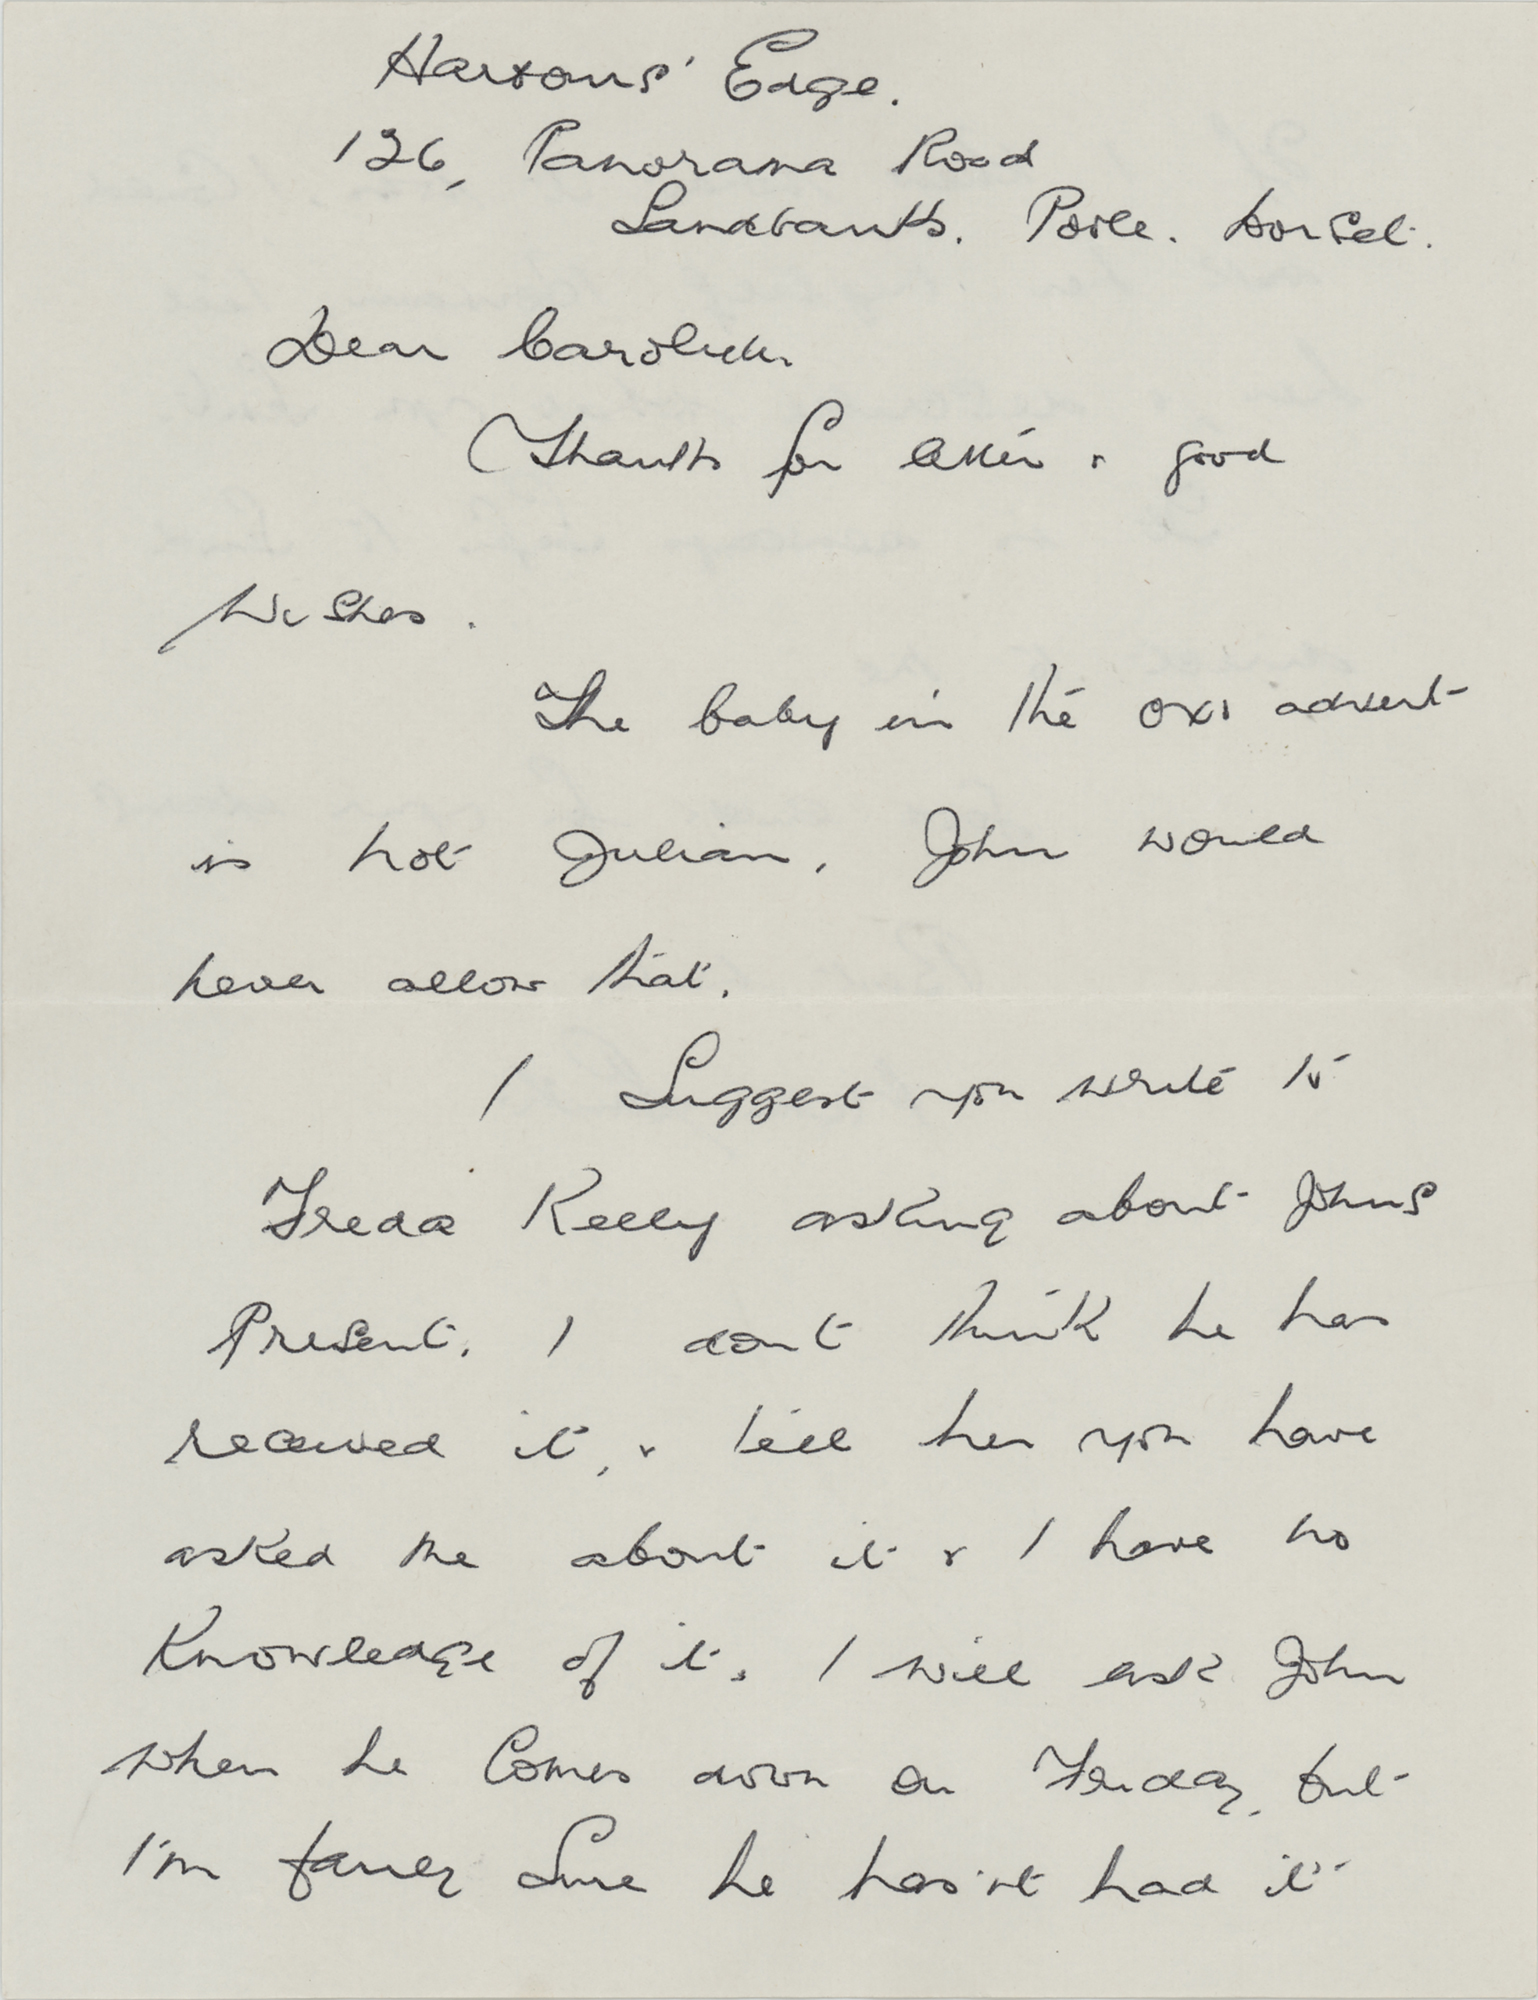 Harbour's Edge.
126, Panorama Road
Sandbanks. Poole. Dorset.
Dear Caroline.
Thanks for letter & good
Wishes.
The baby in the oxo advert
is not Julian. John would
never allow that.
I Suggest you write to
Freda Kelly asking about Johns
Present. I dont think he has
received it, & tell her you have
asked me about it & I have no
Knowledge of it. I will ask John
when he Comes down on Friday, but
I'm fairly Sure he has'nt had it